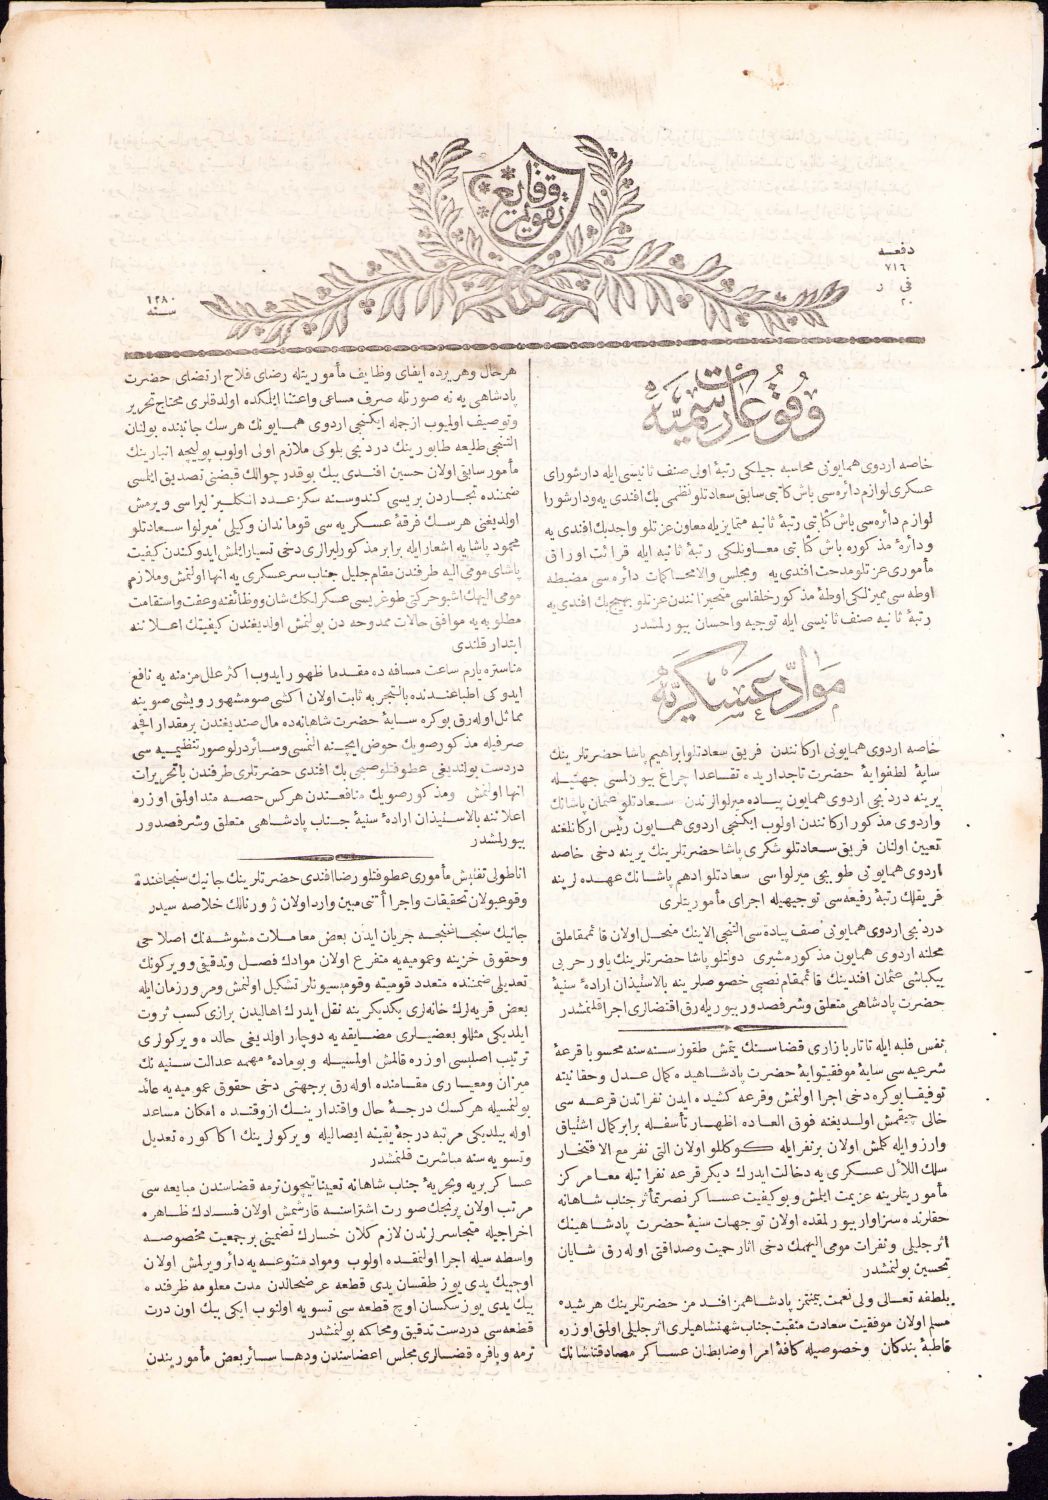 تقويم وقايع
دفعه
٧١٦
فى ر
٢٠
١٢٨٠
سنه
وقوعات رسميه
خاصه اردوى همايونى محاسبه جيلكى رتبهٔ اولى صنف ثانيسى ايله دارشوراى
عسكرى لوازم دائره سى باش كاتبى سابق سعادتلو نظمى بك افندى يه ودارشورا
لوازم دائره سى باش كتابتى رتبهٔ ثانيه متمايزيله معاون عزتلو واجد بك افندى يه
ودائرهٔ مذكوره باش كتابتى معاونلكى رتبهٔ ثانيه ايله قرائت اوراق
مأمورى عزتلو مدحت افندى يه ومجلس والا محاكمات دائره سى مضبطه
اوطه سى مميزلكى اوطهٔ مذكور خلفاسى متحيزانندن عزتلو بهيج بك افندى يه
رتبهٔ ثانيه صنف ثانيسى ايله توجيه واحسان بيورلمشدر
مواد عسكريه
خاصه اردوى همايونى اركانندن فريق سعادتلو ابراهيم پاشا حضرتلرينك
سايهٔ لطفوايهٔ حضرت تاجداريده تقاعدا چراغ بيورلمسى جهتيله
يرينه دردنجى اردوى همايون پياده ميرلوالرندن سعادتلو عثمان پاشانك
واردوى مذكور اركانندن اولوب ايكنجى اردوى همايون رئيس اركانلغنه
تعيين اولنان فريق سعادتلو شكرى پاشا حضرتلرينك يرينه دخى خاصه
اردوى همايونى طوبجى ميرلواسى سعادتلو ادهم پاشانك عهده لرينه
فريقلك رتبهٔ رفيعه سى توجيهيله اجراى مأموريتلرى
دردنجى اردوى همايونى صف پياده سى التنجى الاينك منحل اولان قائمقاملق
محلنه اردوى همايون مذكور مشيرى دولتلو پاشا حضرتلرينك ياور حربى
بيكباشى عثمان افندينك قائمقام نصبى خصوصلرينه بالاستيذان ارادهٔ سنيهٔ
حضرت پادشاهى متعلق وشرفصدور بيوريله رق اقتضالرى اجرا قلنمشدر
نفس فلبه ايله تاتار بازارى قضاسنك يتمش طقوز سنه سنه محسوبا قرعهٔ
شرعيه سى سايهٔ موفقيتوايهٔ حضرت پادشاهيده كمال عدل وحقانيته
توفيقا بوكره دخى اجرا اولنمش وقرعه كشيده ايدن نفراتدن قرعه سى
خالى چيقمش اولديغنه فوق العاده اظهار تأسفله برابر كمال اشتياق
وارزو ايله كلمش اولان برنفر ايله كوكللو اولان التى نفر مع الافتخار
سلك اللآل عسكرى يه دخالت ايدرك ديكر قرعه نفراتيله معا مركز
مأموريتلرينه عزيمت ايلمش وبو كيفيت عساكر نصرتمآثر جناب شاهانه
حقلرنده سزاوار بيورلمقده اولان توجهات سنيهٔ حضرت پادشاهينك
اثر جليلى ونفرات مومى اليهمك دخى اثار حميت وصداقتى اوله رق شايان
تحسين بولنمشدر
بلطفه تعالى ولى نعمت بيمنتمز پادشاهمز افندمز حضرتلرينك هر شيده
مسلم اولان موفقيت سعادت منقبت جناب شهنشاهيلرى اثر جليلى اولمق اوزره
قاطبهٔ بندكان وخصوصيله كافهٔ امرا وضابطان عساكر مصادقتنشانك
هرحال وهريرده ايفاى وظايف مأموريتله رضاى فلاح ارتضاى حضرت
پادشاهى يه نه صورتله صرف مساعى واعتنا ايلمكده اولدقلرى محتاج تحرير
وتوصيف اولميوب ازجمله ايكنجى اردوى همايونك هرسك جانبنده بولنان
التنجى طليعه طابورينك دردنجى بلوكى ملازم اولى اولوب پوليچه انبارينك
مأمور سابقى اولان حسين افندى بيك بوقدر چوالك قبضنى تصديق ايتلمسى
ضمننده تجاردن بريسى كندوسنه سكز عدد انكليز ليراسى ويرمش
اولديغنى هرسك فرقهٔ عسكريه سى قوماندان وكيلى ميرلوا سعادتلو
محمود پاشايه اشعار ايله برابر مذكور ليرالرى دخى تسيار ايلمش ايدوكندن كيفيت
پاشاى مومى اليه طرفندن مقام جليل جناب سرعسكرى يه انها اولنمش وملازم
مومى اليهك اشبو حركتى طوغريسى عسكرلكك شان ووظائفنه وعفت واستقامت
مطلوبه يه موافق حالات ممدوحه دن بولنمش اولديغندن كيفيتك اعلاننه
ابتدار قلندى
مناستره يارم ساعت مسافه ده مقدما ظهور ايدوب اكثر علل مزمنه يه نافع
ايدوكى اطبا عندنده بالتجربه ثابت اولان اكشى صو مشهور ويشى صوينه
مماثل اوله رق بوكره سايهٔ حضرت شاهانه ده مال صنديغندن برمقدار اقچه
صرفيله مذكور صويك حوض ايچنه النمسى وسائر درلو صور تنظيميه سى
دردست بولنديغى عطوفتلو صبحى بك افندى حضرتلرى طرفندن با تحريرات
انها اولنمش ومذكور صويك منافعندن هركس حصه مند اولمق اوزره
اعلاننه بالاستيذان ارادهٔ سنيهٔ جناب پادشاهى متعلق وشرفصدور
بيورلمشدر
اناطولى تفتيش مأمورى عطوفتلو رضا افندى حضرتلرينك جانيك سنجاغنده
وقوعبولان تحقيقات واجراآتنى مبين وارد اولان ژورنالك خلاصه سيدر
جانيك سنجاغنجه جريان ايدن بعض معاملات مشوشه نك اصلاحى
وحقوق خزينه وعموميه يه متفرع اولان موادك فصل وتدقيقى وويركونك
تعديلى ضمننده متعدد قوميته وقوميسيونلر تشكيل اولنمش ومرور زمان ايله
بعض قريه لرك خانه لرى يكديكرينه نقل ايدرك اهاليدن برازى كسب ثروت
ايلديكى مثللو بعضيلرى مضايقه يه دوچار اولديغى حالده ويركولرى
ترتيب اصليسى اوزره قالمش اولمسيله وبو مادهٔ مهمه عدالت سنيه نك
ميزان ومعيارى مقامنده اوله رق برجهتى دخى حقوق عموميه يه عائد
بولنمسيله هركسك درجهٔ حال واقتدارينك ازوقتده امكان مساعد
اوله بيلديكى مرتبه درجهٔ يقينه ايصاليله ويركولرينك اكا كوره تعديل
وتسويه سنه مباشرت قلنمشدر
عساكر بريه وبحريهٔ جناب شاهانه تعييناتيچون ترمه قضاسندن مبايعه سى
مرتب اولان پرنجك صورت اشتراسنه قارشمش اولان فسادك ظاهره
اخراجيله متجاسرلرندن لازم كلان خسارك تضمينى برجمعيت مخصوصه
واسطه سيله اجرا اولنمقده اولوب ومواد متنوعه يه دائر ويرلمش اولان
اوچبيك يدى يوز طقسان يدى قطعه عرضحالدن مدت معلومه ظرفنده
بيك يدى يوز سكسان اوچ قطعه سى تسويه اولنوب ايكى بيك اون درت
قطعه سى دردست تدقيق ومحاكمه بولنمشدر
ترمه وبافره قضالرى مجلس اعضاسندن ودها سائر بعض مأموريندن